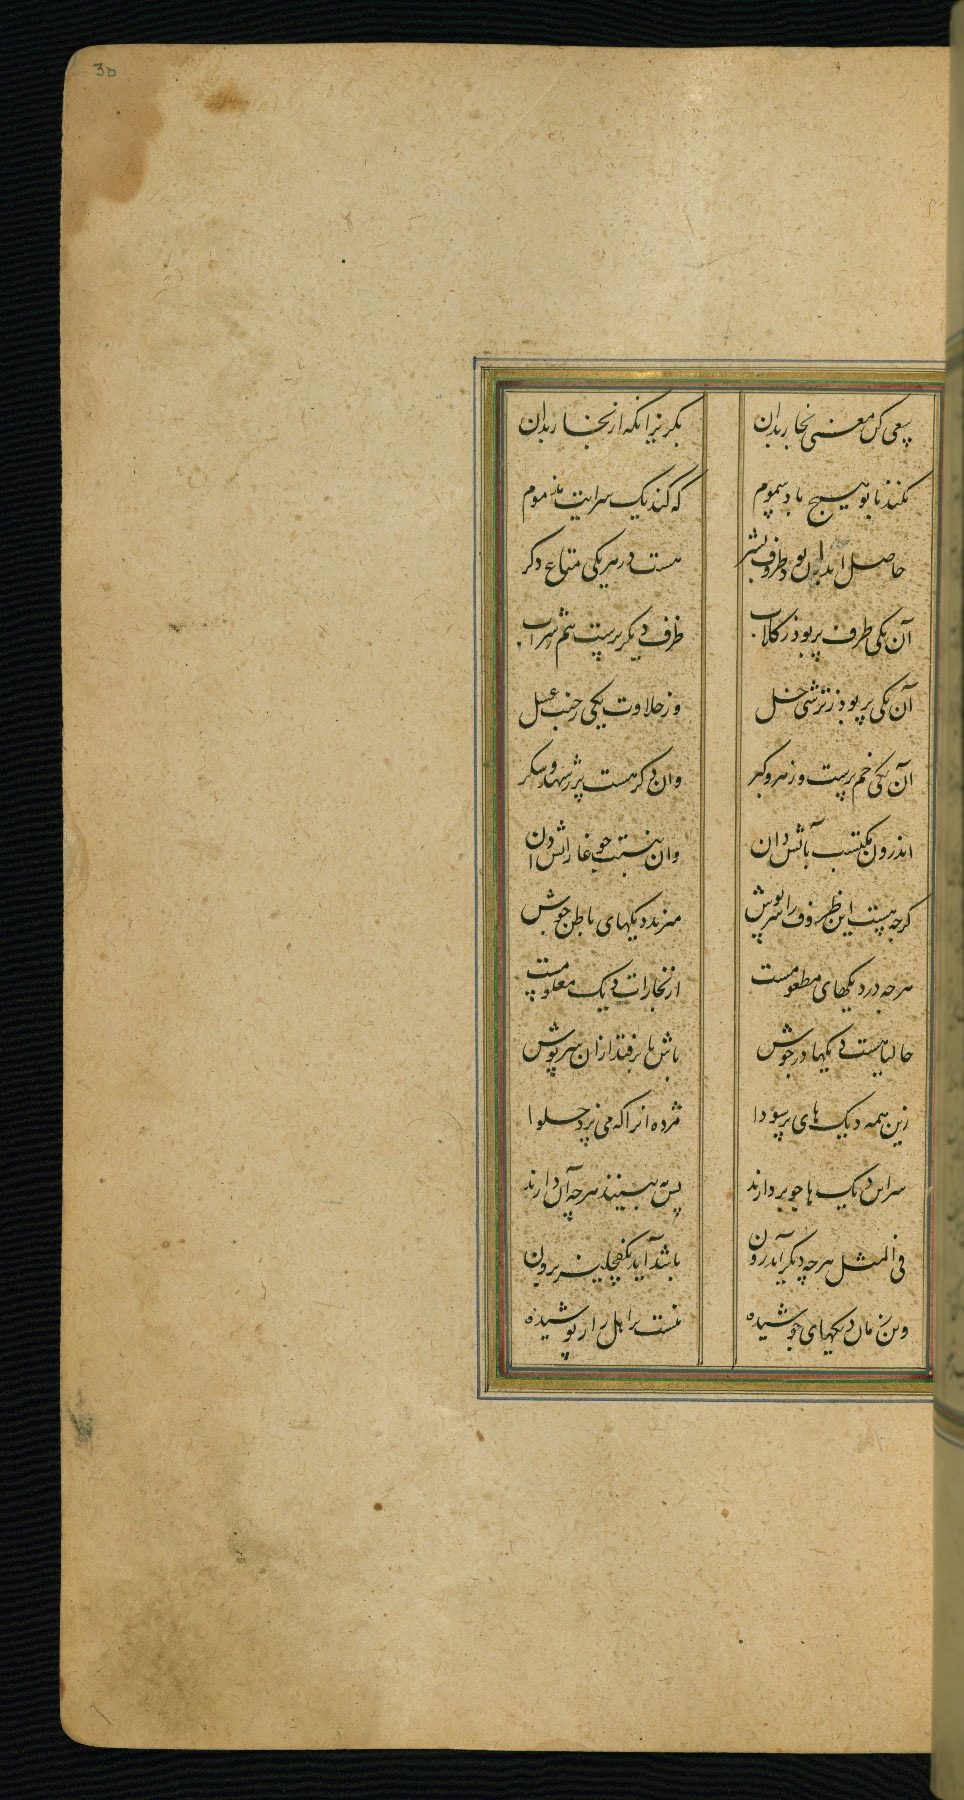 30
سعی کن معنی نجا ربدان
بکریزانکه ازنجا ربدان
نکنذ با تو هیچ باد سموم
که کند یک سرایت مذموم
حاصل ابدان بود ظروف بشر
هست در هر یکی متاع دکر
آن یکی ظرف پر بوذ ز کلاب
ظرف دیکر پرست هم ز شراب
آن یکی پر بوذ ز ترشی خل
وز حلاوت یکی
آن یکی خم پرست وز
وان دکر هست پر ز شهد و شکر
اندرون مکتسب بآتش دان
وان
کرچه هست این ظروف را سرپوش
میزند دیکهای باطن جوش
هرچه در دیکهای مطعومست
از بخارات دیک معلومست
حالیا هست دیکها در جوش
باش تا برفتد ازان سرپوش
زین همه دیک های پر سودا
مژده انرا که می پزد حلوا
سر این دیک ها چو بردارند
پس ببینند هرچه آن دارند
فی المثل هرچه دیکر آید درون
باشد آید بکفچلیز برون
وین زمان دیکهای جوشیده
نیست بر اهل راز پوشیده